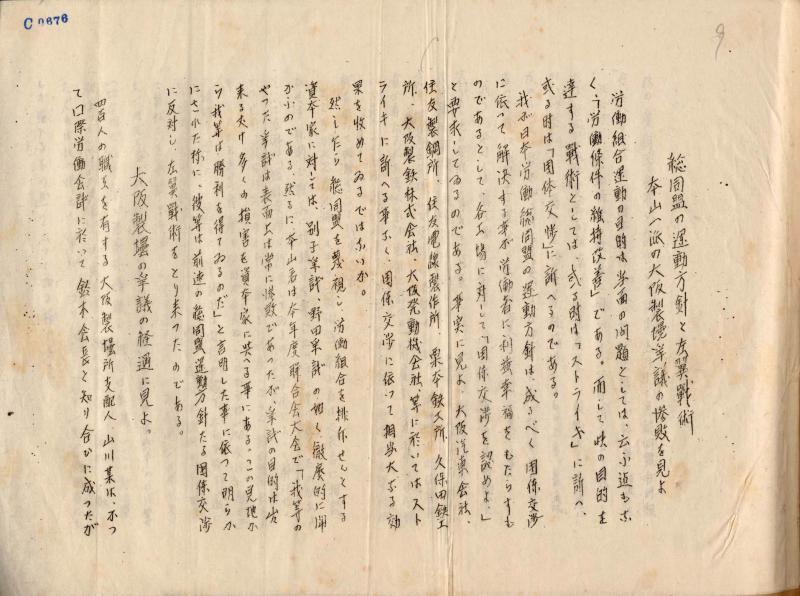 C 0676
総同盟の運動方針と左翼戦術
本山一派の大阪製壜争議の惨敗を見よ
労働組合運動の目的は当面の問題としては、云ふ迄もな
く、労働條件の維持改善」である。而して此の目的を
達する戦術としては、或る時は「ストライキ」に訴へ、
或る時は「団体交渉」に訴へるのである。
我が日本労働総同盟の運動方針は、成るべく団体交渉
に依って解決する事が労働者に利益幸福をもたらすも
のであるとして、各工場に対して「団体交渉を認めよ」
と要求してゐるのである。事実に見よ、大阪汽車会社、
住友製鋼所、住友電線製作所、栗本鉄工所、久保田鉄工
所、大阪製鉄株式会社、大阪発動機会社、等に於いてはスト
ライキに訴へる事なく、団体交渉に依って相当大なる効
果を收めてゐるではないか。
然しながら総同盟を蔑視し労働組合を排斥せんとする
資本家に対しては、別子争議、野田争議の如く徹底的に闘
かふのである。然るに本山君は今年度聯合会大会で「我等の
やった争議は表面上は常に惨敗であったが、争議の目的は出
来る丈け多くの損害を資本家に与へる事にある。この見地か
ら我等は勝利を得てゐるのだ」と言明した事に依って明らか
にされた様に、彼等は前述の総同盟運動方針たる団体交渉
に反対し、左翼戦術をとり来ったのである。
大阪製壜の争議の経過に見よ。
四百人の職工を有する大阪製壜所支配人、山川某は、かつ
て国際労働会議に於いて鈴木会長と知り合ひに成ったが